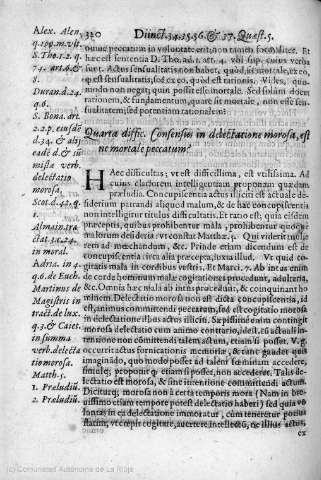 320 Distinct. 34. 35. 36. & 37. Quæst. 5.
Alex. Alen.
q. 109. m. vlt.
S. Tho. 1. 2. q.
74. art. 6. &
8.
Duran. d. 24.
q. 6.
S. Bona. art.
2. 2. p. eiusdē
d. 34. & alij
eadē d. & sū
mistæ verb.
delectatio
morosa,
Scot. d. 42. q.
1.
Almain. tra
ctat. 3. c. 24.
in moral.
Adria. in 4.
q. 6. de Euch.
Martinus de
Magistris in
tract. de lux.
q. 3. & Caiet.
in summa
verb. delecta
tio morosa.
Matth. 5.
1. Præludiū.
2. Præludiū.
omne peccatum in voluntate erit, non tamen
hæc est sententia D. Tho. ad 1. art. 4. vbi sup. cuius verba
sunt. Actus sensualitatis non habet, quòd, sit mortale, ex eo,
q, est sensualitatis, sed ex eo, quòd est rationis. Vides, quo-
modo non negat, quin possit esse mortale. Sed solùm dat
rationem, & fundamentum, quare sit mortale, non esse sen-
sualitatem, sed potentiam rationalem.
Quarta diffic. Consensus in delectatione morosa, est
ne mortale peccatum?
HAec difficultas; vt est difficillima, est vtilissima. Ad
cuius clariorem intelligentiam proponam quædam
præludia. Concupiscentia actus illiciti est actuale de-
siderium patrandi aliquod malum, & de hac concupiscentia
non intelligitur titulus difficultatis. Et ratio est; quia eisdem
præceptis, quibus prohibentur mala, prohibentur quoque
malorum desideria: vt constat Matthæ. 5. Qui viderit mulie-
rem ad mœchandum, &c. Proinde etiam dicendum est de
concupiscentia circa alia præcepta, luxui illud. Vt quid co-
gitatis mala in cordibus vestris. Et Marci. 7. Ab intus enim
de corde hominum malæ cogitationes procedunt, adulteria,
&c. Omnia hæc mala ab intùs procedunt, & coinquinant ho-
minem. Delectatio morosa non est dicta concupiscentia, id
est, animus committendi peccatum, sed est cogitatio morosa
in delectatione illius actus illiciti. Sæpissimè enim contingit
morosa delectatio cum animo contrario, idest, cū actuali in-
tentione non committendi talem actum, etiam si posset. V. g.
occurrit actus fornicationis memoriæ, & tunc gaudet quis
imaginando, quo modo posset ad talem feminam accedere,
simulq; proponit q, etiam si posset, non accedere. Talis de-
lectatio est morosa, & sine intentione committendi actum.
Diciturq; morosa non à certa temporis mora (Nam in bre-
uissimo etiam tempore potest delectatio haberi) sed quia vo
luntas in ea delectatione immoratur, cùm teneretur potius
statim, vt cœpit cogitare, auertere intellectū, & illius actus,
ex
(c) Comunidad Autónoma de La Rioja